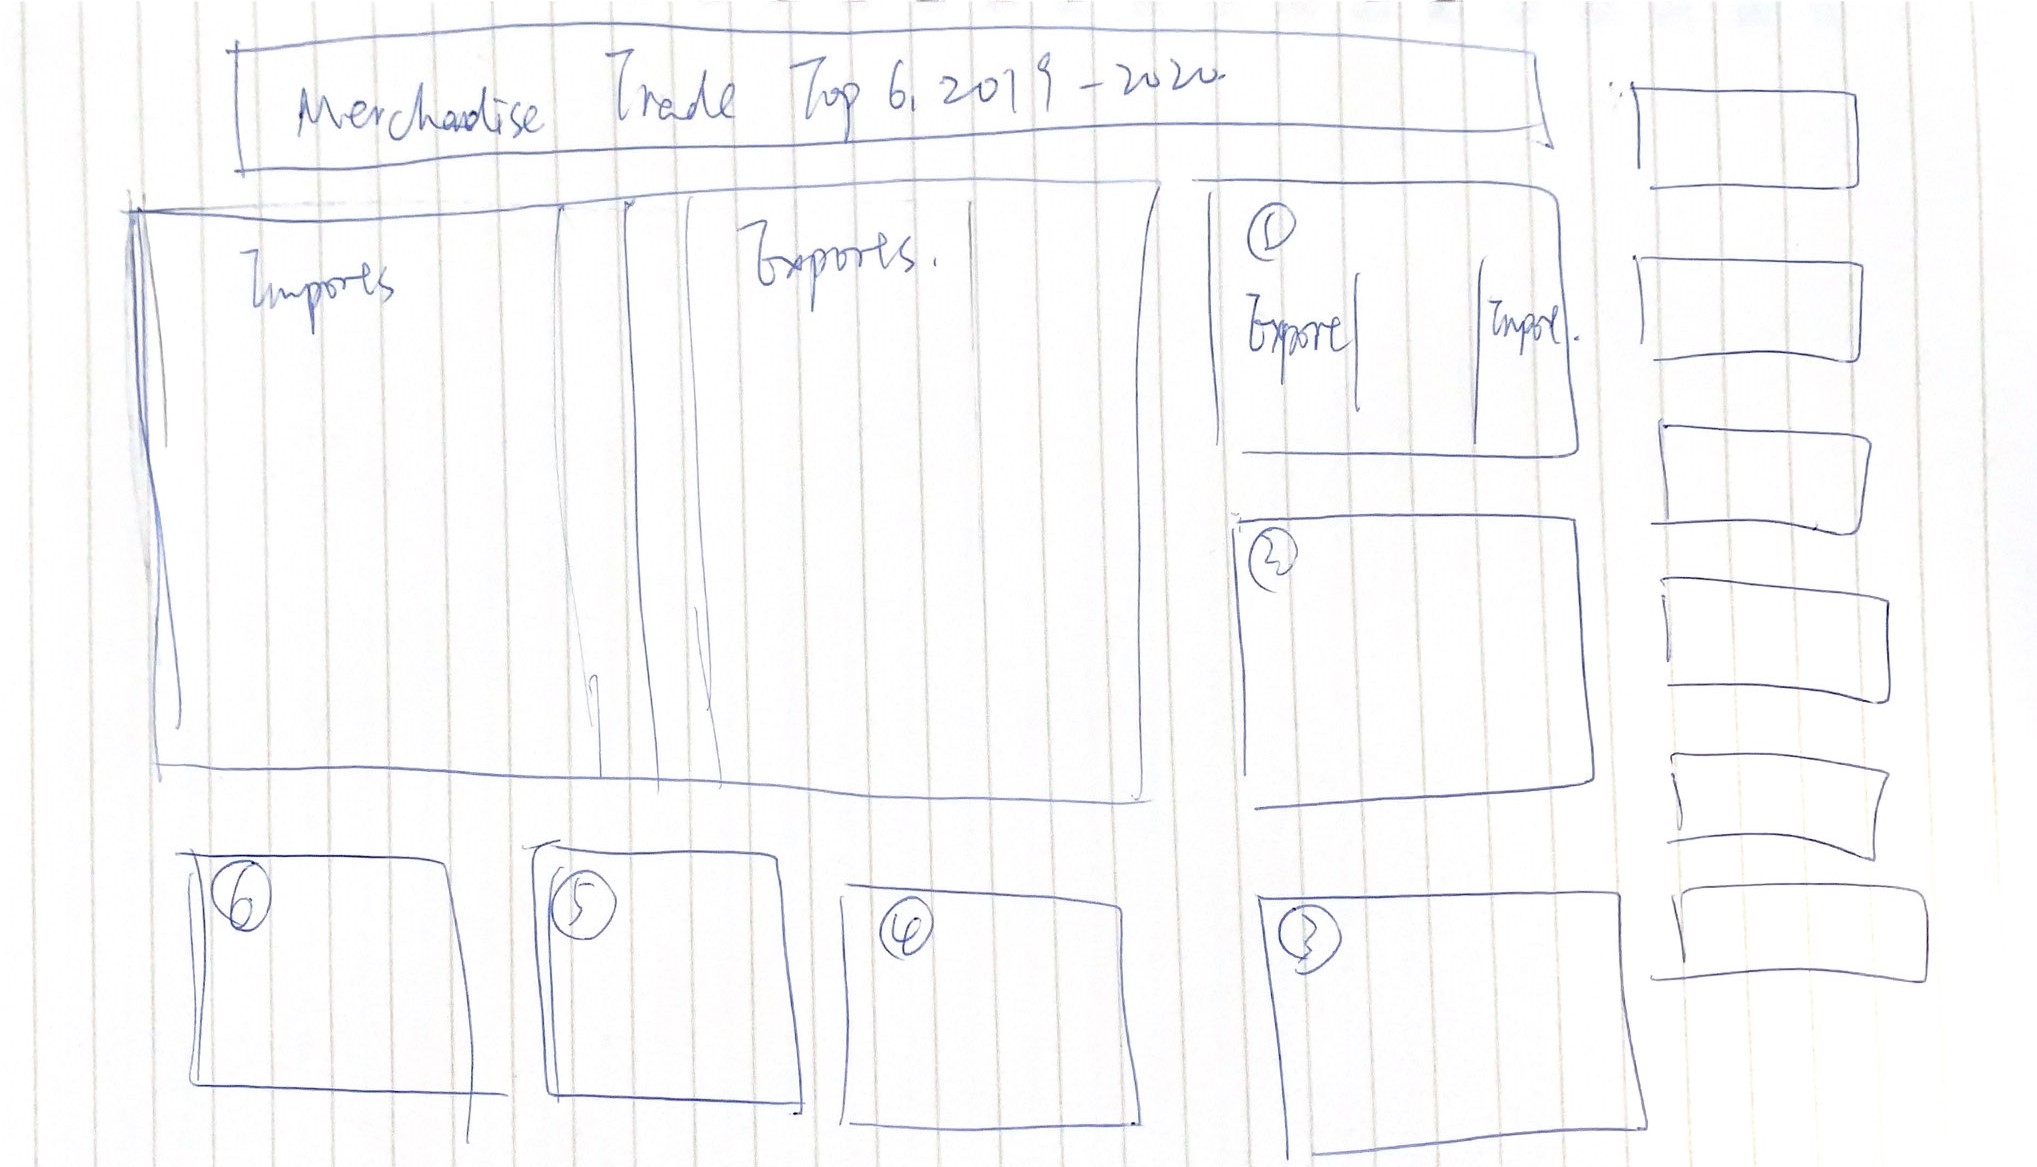 Merchandise Trade Top 6, 2019-2020
Imports
Exports.
①
Export
Import.
②
⑥
⑤
④
③